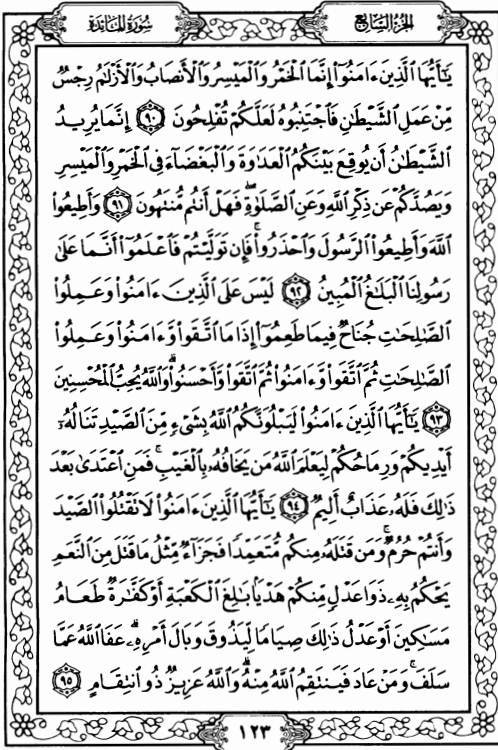 سُورَةُ المَائِدَةِ
الجُزْءُ السَّابِعُ
يَٰٓأَيُّهَا ٱلَّذِينَ ءَامَنُوٓاْ إِنَّمَا ٱلْخَمْرُ وَٱلْمَيْسِرُ وَٱلْأَنصَابُ وَٱلْأَزْلَٰمُ رِجْسٌ
مِّنْ عَمَلِ ٱلشَّيْطَٰنِ فَٱجْتَنِبُوهُ لَعَلَّكُمْ تُفْلِحُونَ ٩٠ إِنَّمَا يُرِيدُ
ٱلشَّيْطَٰنُ أَن يُوقِعَ بَيْنَكُمُ ٱلْعَدَٰوَةَ وَٱلْبَغْضَآءَ فِى ٱلْخَمْرِ وَٱلْمَيْسِرِ
وَيَصُدَّكُمْ عَن ذِكْرِ ٱللَّهِ وَعَنِ ٱلصَّلَوٰةِ ۖ فَهَلْ أَنتُم مُّنتَهُونَ ٩١ وَأَطِيعُواْ
ٱللَّهَ وَأَطِيعُواْ ٱلرَّسُولَ وَٱحْذَرُواْ ۚ فَإِن تَوَلَّيْتُمْ فَٱعْلَمُوٓاْ أَنَّمَا عَلَىٰ
رَسُولِنَا ٱلْبَلَٰغُ ٱلْمُبِينُ ٩٢ لَيْسَ عَلَى ٱلَّذِينَ ءَامَنُواْ وَعَمِلُواْ
ٱلصَّٰلِحَٰتِ جُنَاحٌ فِيمَا طَعِمُوٓاْ إِذَا مَا ٱتَّقَواْ وَّءَامَنُواْ وَعَمِلُواْ
ٱلصَّٰلِحَٰتِ ثُمَّ ٱتَّقَواْ وَّءَامَنُواْ ثُمَّ ٱتَّقَواْ وَّأَحْسَنُواْ ۗ وَٱللَّهُ يُحِبُّ ٱلْمُحْسِنِينَ
٩٣ يَٰٓأَيُّهَا ٱلَّذِينَ ءَامَنُواْ لَيَبْلُوَنَّكُمُ ٱللَّهُ بِشَىْءٍ مِّنَ ٱلصَّيْدِ تَنَالُهُۥٓ
أَيْدِيكُمْ وَرِمَاحُكُمْ لِيَعْلَمَ ٱللَّهُ مَن يَخَافُهُۥ بِٱلْغَيْبِ ۚ فَمَنِ ٱعْتَدَىٰ بَعْدَ
ذَٰلِكَ فَلَهُۥ عَذَابٌ أَلِيمٌ ٩٤ يَٰٓأَيُّهَا ٱلَّذِينَ ءَامَنُواْ لَا تَقْتُلُواْ ٱلصَّيْدَ
وَأَنتُمْ حُرُمٌ ۚ وَمَن قَتَلَهُۥ مِنكُم مُّتَعَمِّدًا فَجَزَآءٌ مِّثْلُ مَا قَتَلَ مِنَ ٱلنَّعَمِ
يَحْكُمُ بِهِۦ ذَوَا عَدْلٍ مِّنكُمْ هَدْيًۢا بَٰلِغَ ٱلْكَعْبَةِ أَوْ كَفَّٰرَةٌ طَعَامُ
مَسَٰكِينَ أَوْ عَدْلُ ذَٰلِكَ صِيَامًا لِّيَذُوقَ وَبَالَ أَمْرِهِۦ ۗ عَفَا ٱللَّهُ عَمَّا
سَلَفَ ۚ وَمَنْ عَادَ فَيَنتَقِمُ ٱللَّهُ مِنْهُ ۗ وَٱللَّهُ عَزِيزٌ ذُو ٱنتِقَامٍ ٩٥
١٢٣